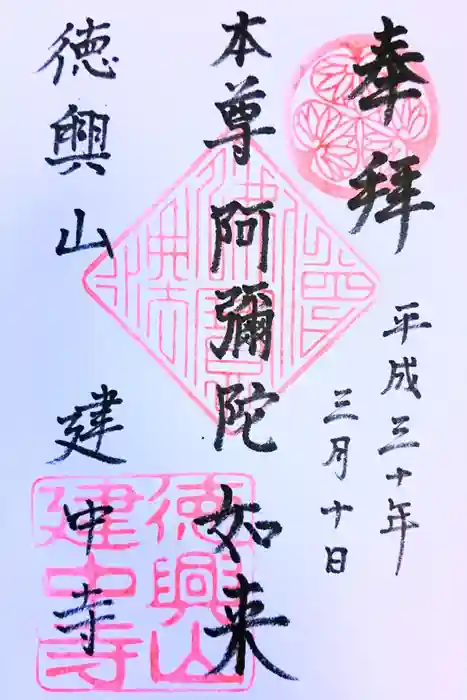 奉拝
平成三十年
三月十日
本尊阿彌陀如来
徳興山
建中寺
徳興山
建中寺